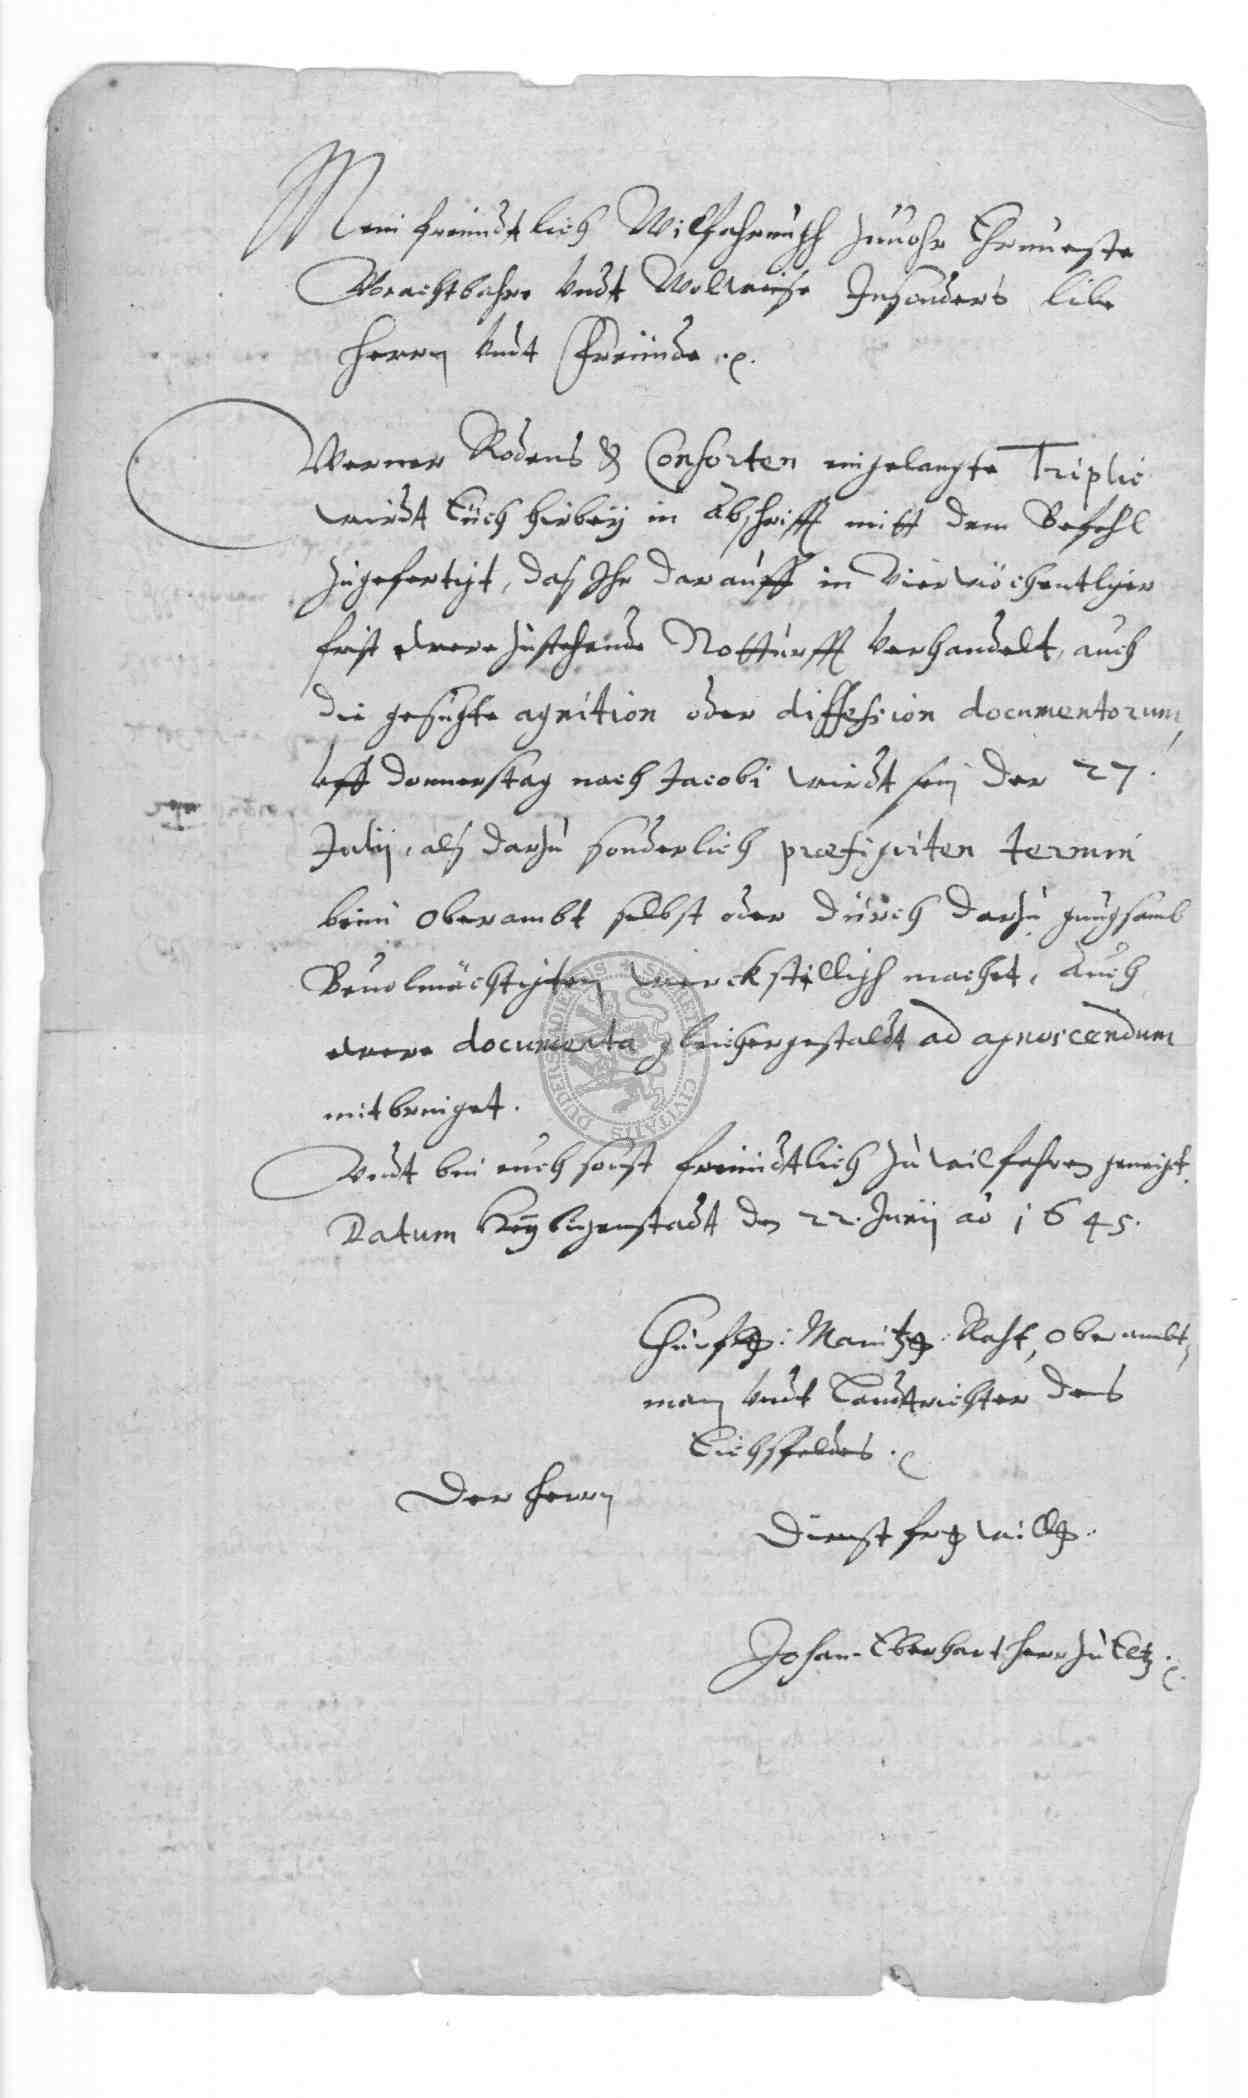 Mein freundtlich Wilfahrungh zuuohr Ehrnueste
Vorachtbahre Undt Wolweise Insonders liebe
Herrn Undt Freunde .p.
Werner Rodens & Consorten eingelangte Triplic
wirdt Euch hirbey in Abschrifft mitt dem Befehl
zugefertigt, daß Ihr darauff in vier wöchentlyer
frist ewere zustehende Notturfft verhandelt, auch
die gesuchte agnition oder diffession documentorum,
uff Donnerstag nach Jacobi wirdt sein der 27.
Julij, alß darzu sonderlich præfigirten termin
beim Oberambt selbst oder durch darzu gnugsamb
Beuolmächtigten wirckstelligh machet, Auch
ewere documenta gleichergestaldt ad agnoscendum
mitbringet.
Undt bin euch sonst freundtlich zu wilfahren geneigt.
Datum Heyligenstadt den 22. Junij aō 1645.
Churf: Maintz: Raht, Oberambt,
man Undt Landtrichter des
Eichsfeldes .p
Der Herrn
Dienst willg:
Johan Eberhart Herr zu Eltz .p.
SIGILLUM CIVITATIS DUDERSTADIENSIS